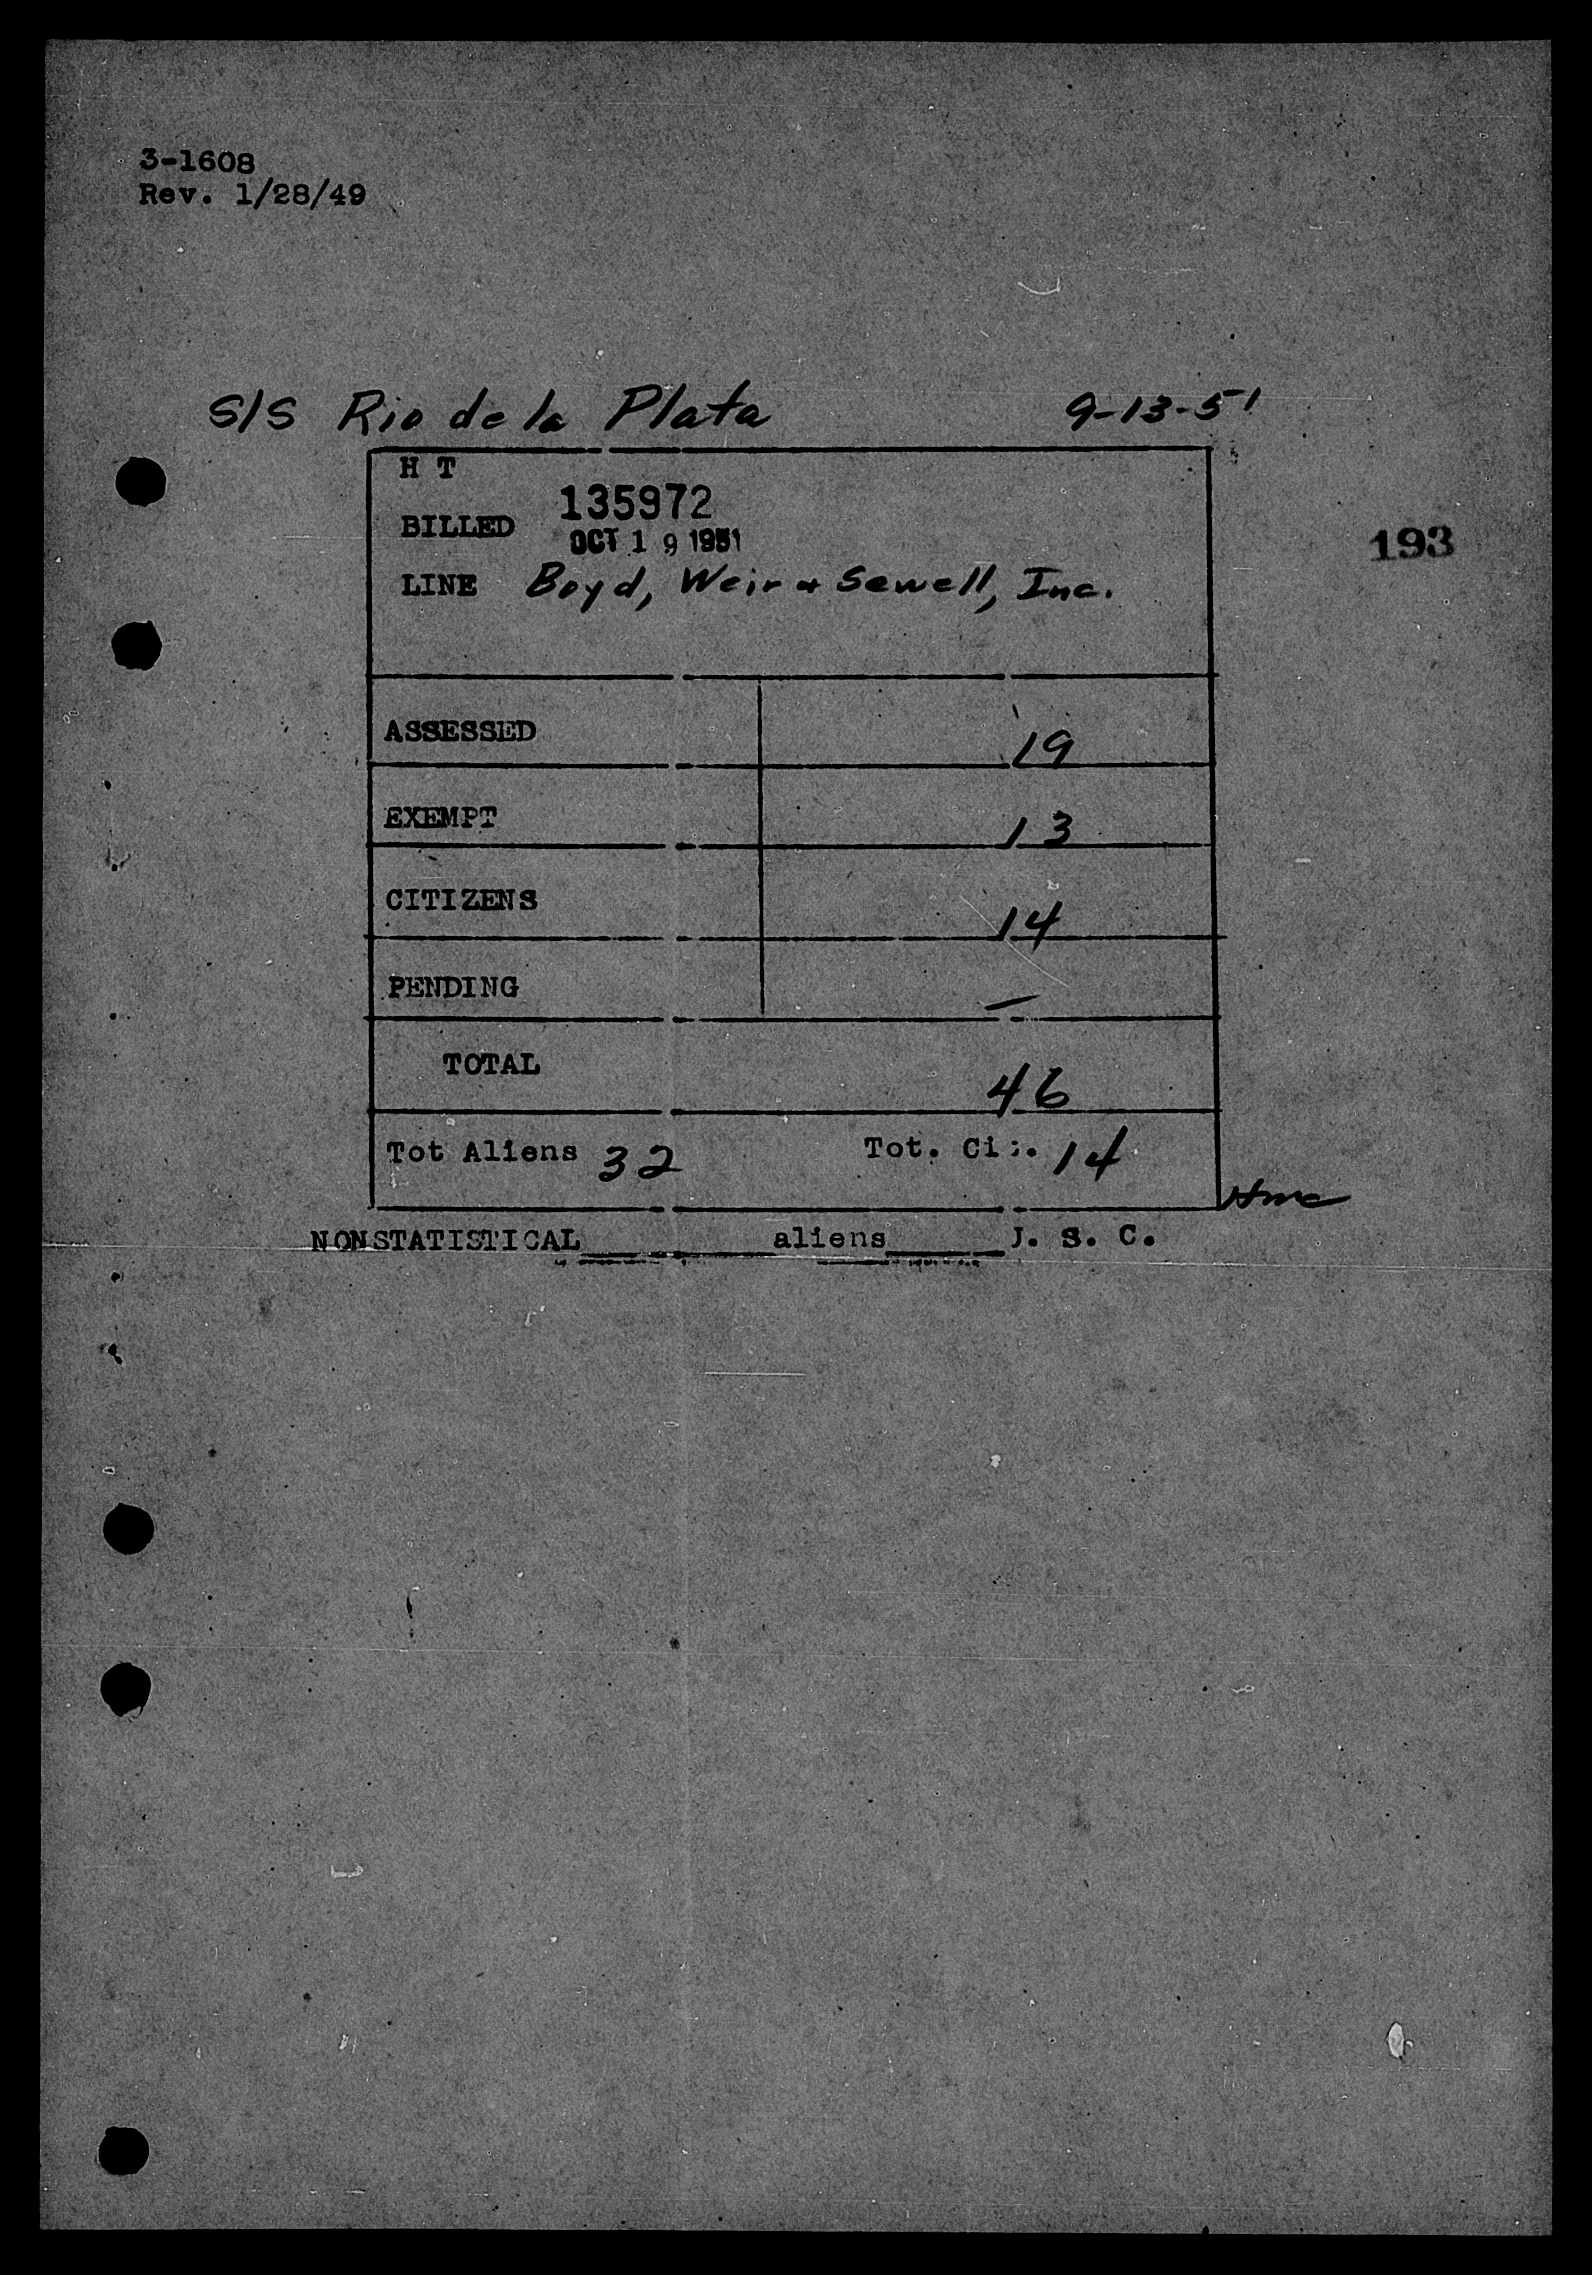 3-1608
Rev. 1/28/49
S/S Rio de la Plata 9-13-51
H T
135972
BILLED
OCT 19 1951
193
LINE Boyd, Weir & Sewell, Inc.
ASSESSED 19
EXEMPT 13
CITIZENS 14
PENDING —
TOTAL 46
Tot Aliens 32 Tot. Cit. 14
NONSTATISTICAL aliens J. S. C.